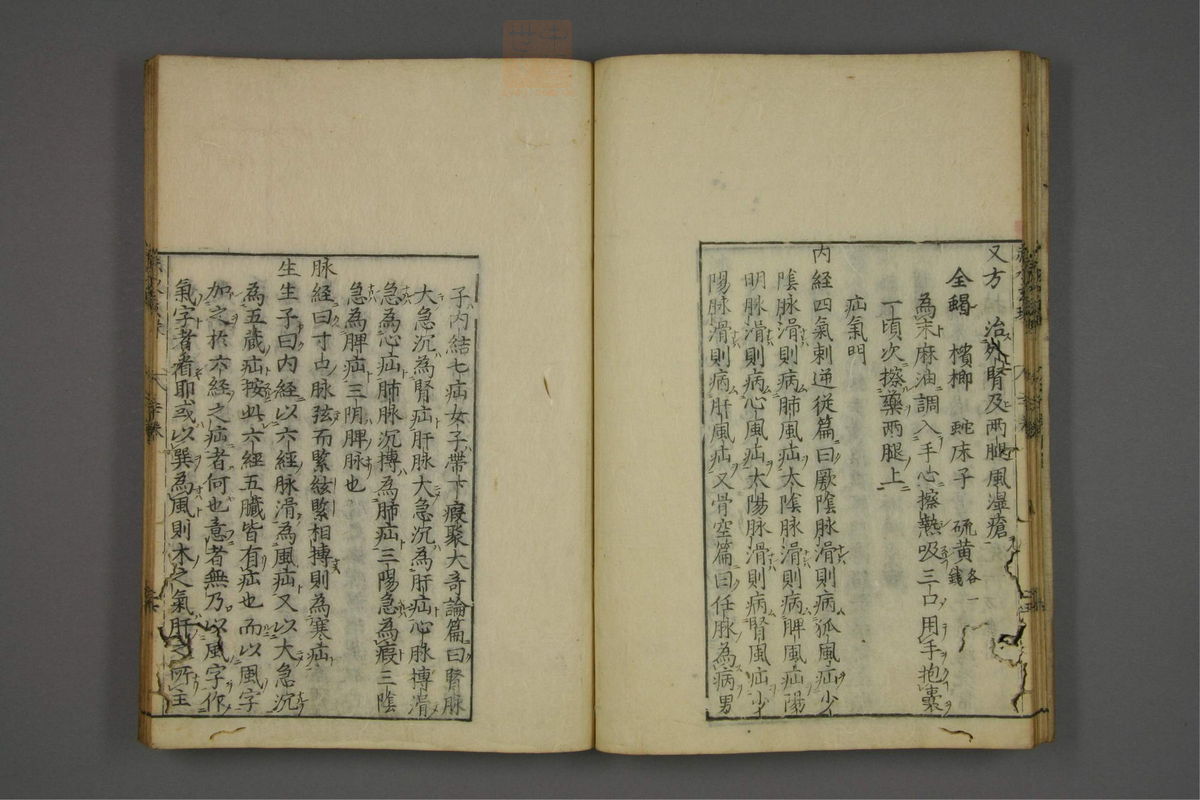 又方 治外腎及兩腿風湿瘡
全蝎 檳榔 蛇床子 硫黄各一錢
為末麻油調入手心擦熱吸三口用手抱囊
一頃次擦藥兩腿上
疝氣門
内経四氣刺逆從篇曰厥陰脉滑則病狐風疝少
陰脉滑則病肺風疝太陰脉滑則病脾風疝陽
明脉滑則病心風疝太陽脉滑則病腎風疝少
陽脉滑則病肝風疝又骨空篇曰任脉為病男
子内結七疝女子帶下瘕聚大竒論篇曰腎脉
大急沉為腎疝肝脉大急沉為肝疝心脉搏滑
急為心疝肺脉沉搏為肺疝三陽急為瘕三陰
急為脾疝三阴脾脉也
脉経曰寸口脉弦而緊絃緊相摶則為寒疝
生生子曰内経以六経脉滑為風疝又以大急沉
為五蔵疝按此六経五臓皆有疝也而以風字
加之於六経之疝者何也意者無乃以風字作
氣字者看耶或以巽為風則木之氣肝之所主